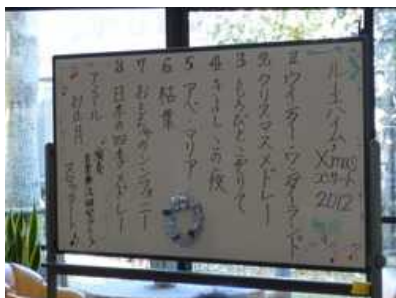 Xmas
コンサート
2012
1 ウインター・ワンダーランド
2 クリスマスメドレー
3 もろびとこぞりて
4 きよしこの夜
5 アベ・マリア
6 枯葉
7 おもちゃのシンフォニー
8 日本の四季メドレー
アンコール
お正月